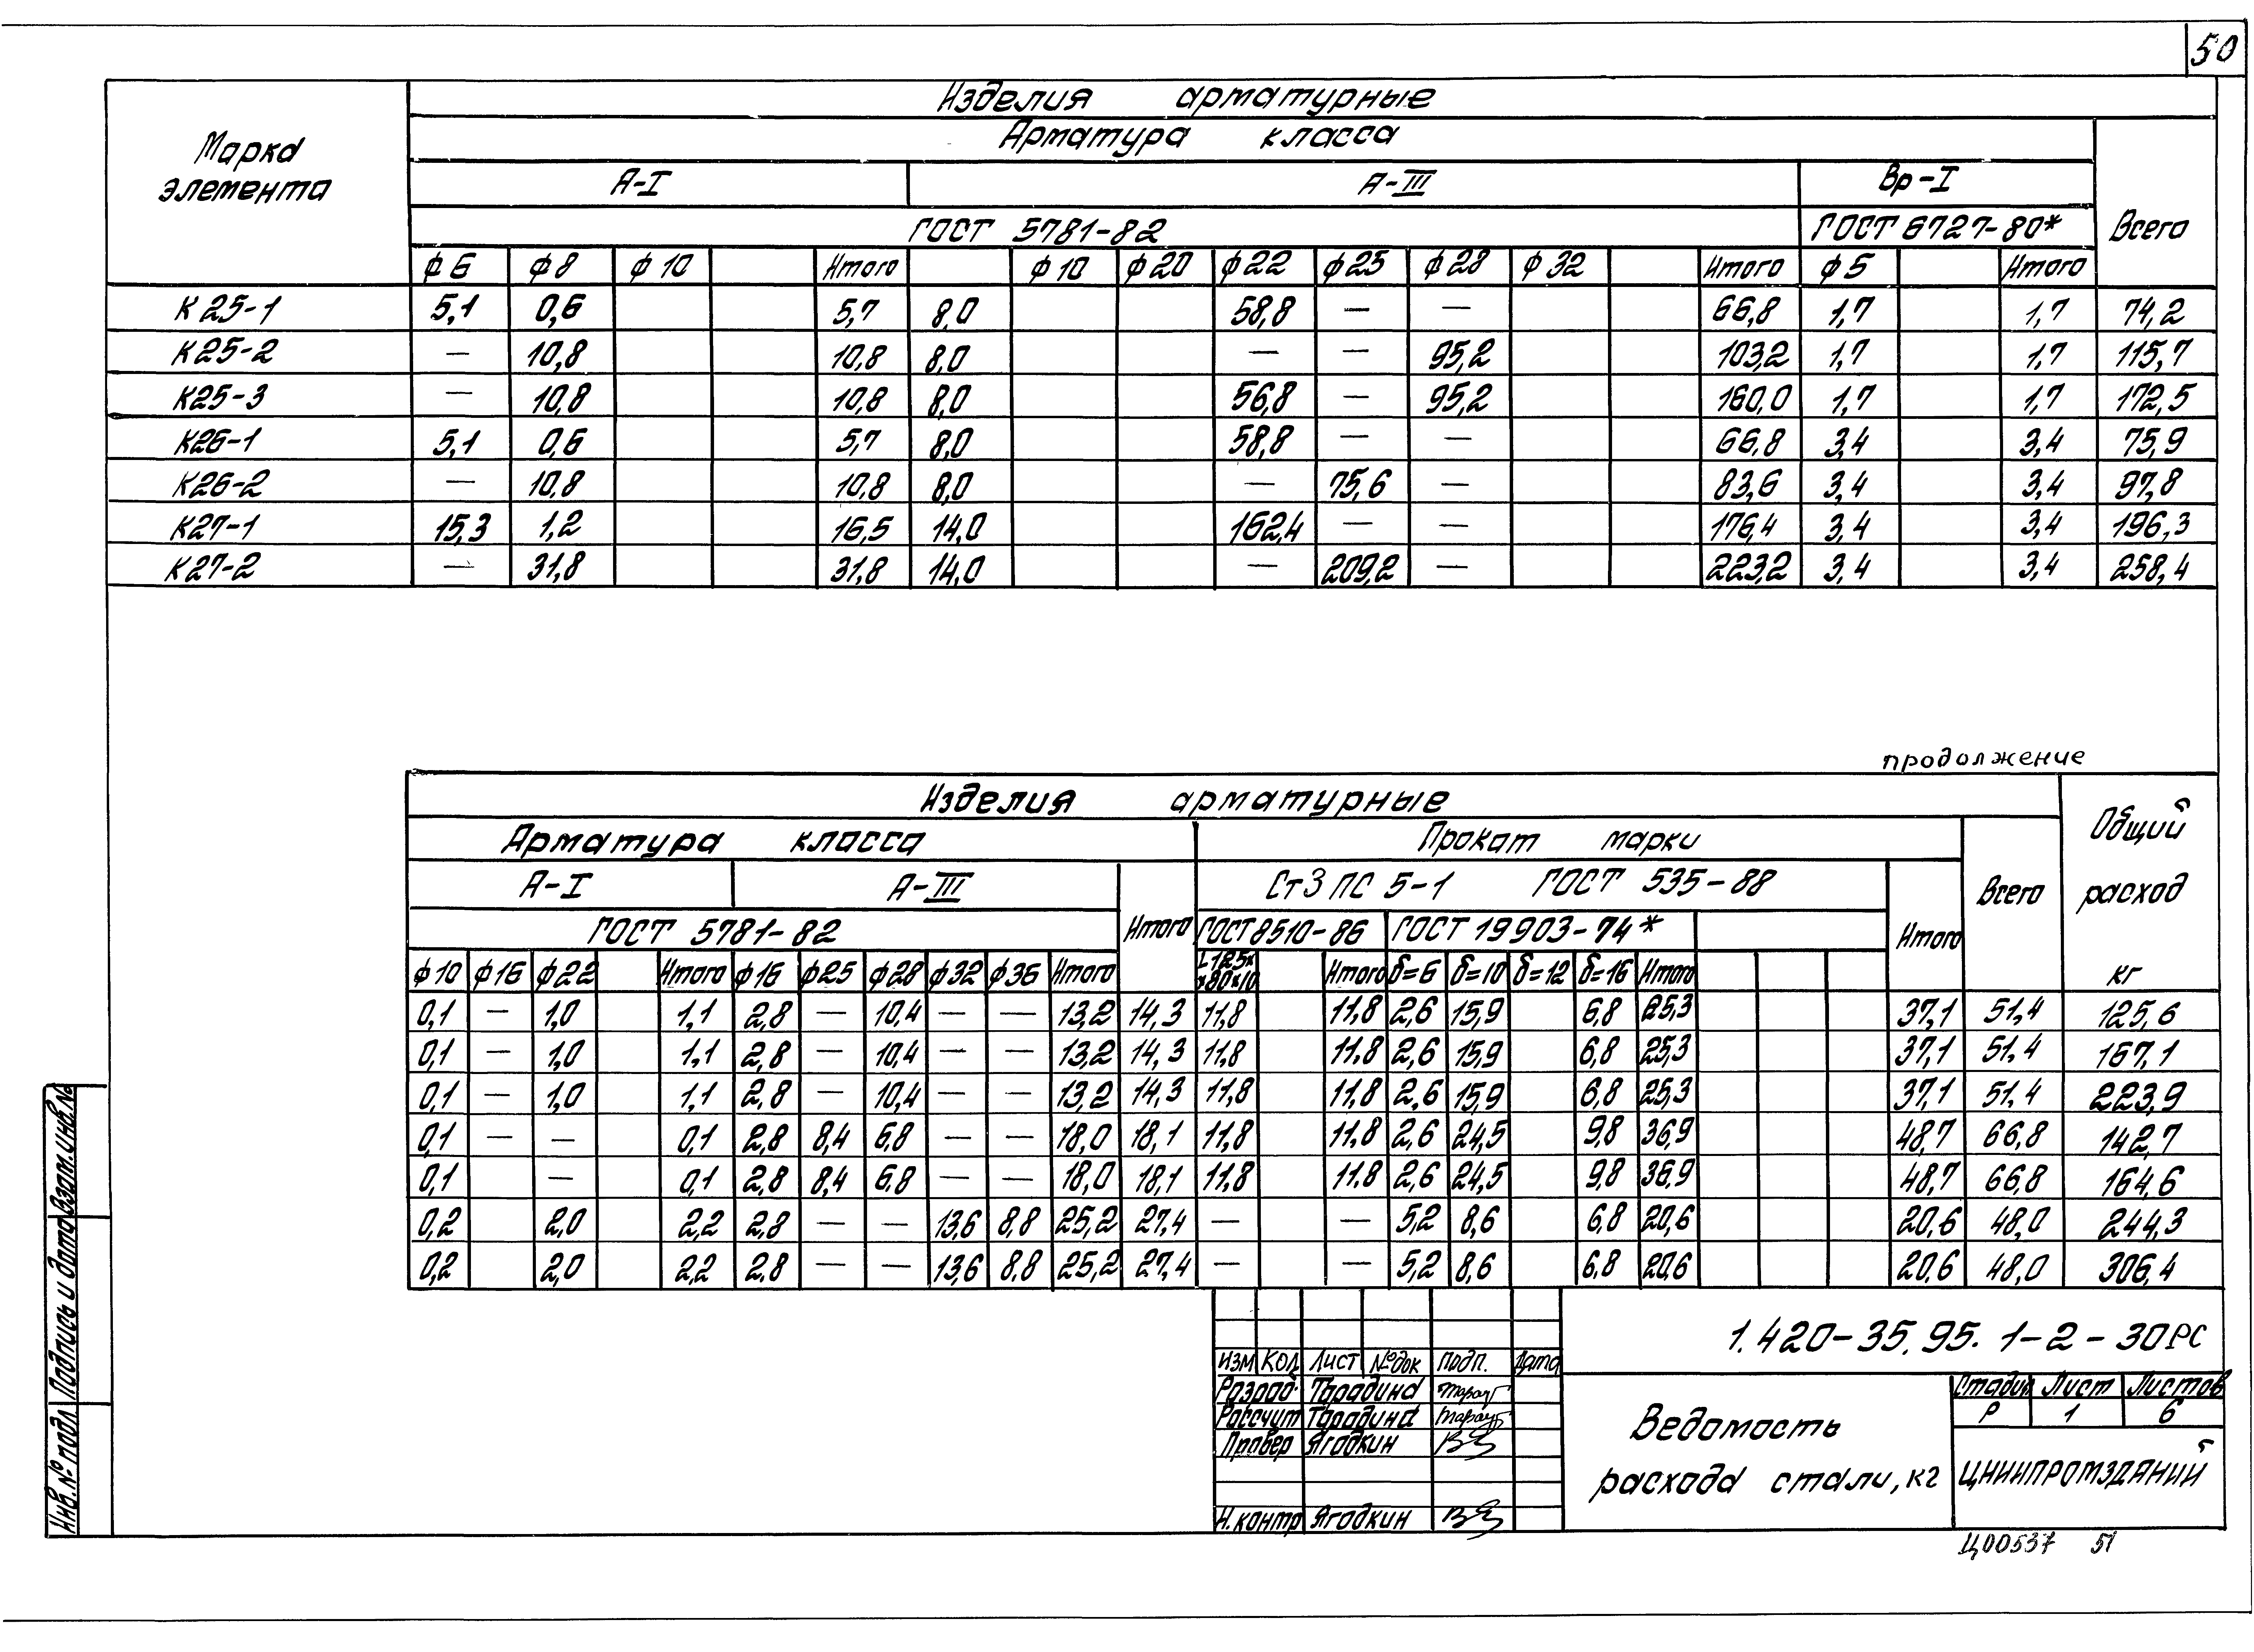 50
Изделия арматурные
Марка элемента
Арматура класса
А-I А-III Вр-I
ГОСТ 5781-82 ГОСТ 6727-80* Всего
ф6 ф8 ф10 Итого ф10 ф20 ф22 ф25 ф28 ф32 Итого ф5 Итого
К25-1 5,1 0,6 5,7 8,0 58,8 — — 66,8 1,7 1,7 74,2
К25-2 — 10,8 10,8 8,0 — — 95,2 103,2 1,7 1,7 115,7
К25-3 — 10,8 10,8 8,0 56,8 — 95,2 160,0 1,7 1,7 172,5
К26-1 5,1 0,6 5,7 8,0 58,8 — — 66,8 3,4 3,4 75,9
К26-2 — 10,8 10,8 8,0 — 75,6 — 83,6 3,4 3,4 97,8
К27-1 15,3 1,2 16,5 14,0 162,4 — — 176,4 3,4 3,4 196,3
К27-2 — 31,8 31,8 14,0 — 209,2 — 223,2 3,4 3,4 258,4
продолжение
Изделия арматурные
Общий расход кг
Арматура класса Прокат марки
А-I А-III Ст3 ПС 5-1 ГОСТ 535-88 Всего
ГОСТ 5781-82 Итого ГОСТ 8510-86 ГОСТ 19903-74* Итого
ф10 ф16 ф22 Итого ф16 ф25 ф28 ф32 ф36 Итого L125××80×10 Итого δ=6 δ=10 δ=12 δ=16 Итого
0,1 — 1,0 1,1 2,8 — 10,4 — — 13,2 14,3 11,8 11,8 2,6 15,9 6,8 25,3 37,1 51,4 125,6
0,1 — 1,0 1,1 2,8 — 10,4 — — 13,2 14,3 11,8 11,8 2,6 15,9 6,8 25,3 37,1 51,4 167,1
0,1 — 1,0 1,1 2,8 — 10,4 — — 13,2 14,3 11,8 11,8 2,6 15,9 6,8 25,3 37,1 51,4 223,9
0,1 — — 0,1 2,8 8,4 6,8 — — 18,0 18,1 11,8 11,8 2,6 24,5 9,8 36,9 48,7 66,8 142,7
0,1 — 0,1 2,8 8,4 6,8 — — 18,0 18,1 11,8 11,8 2,6 24,5 9,8 36,9 48,7 66,8 164,6
0,2 2,0 2,2 2,8 — — 13,6 8,8 25,2 27,4 — — 5,2 8,6 6,8 20,6 20,6 48,0 244,3
0,2 2,0 2,2 2,8 — — 13,6 8,8 25,2 27,4 — — 5,2 8,6 6,8 20,6 20,6 48,0 306,4
Инв.№ подл Подпись и дата Взам.инв.№
1.420-35.95. 1-2-30РС
Изм Кол Лист №док Подп. Дата
Разраб. Тарадина
Рассчит Тарадина
Провер Ягодкин
Н.контр Ягодкин
Ведомость
расхода стали, кг
Стадия Лист Листов
Р 1 6
ЦНИИПРОМЗДАНИЙ
Ц00537 51